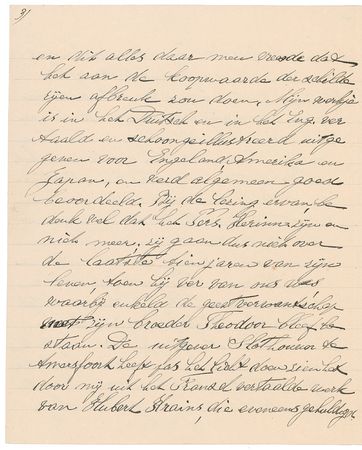 3)
en dit alles daar men vreesde dat
het aan de koopwaarde der schilde
rijen afbreuk zou doen. Mijn werkje
is in het Duitsch en in het Eng. ver
taald en schoon geillustreerd uitge
geven voor Engeland, Amerika en
Japan, en werd algemeen goed
beoordeeld. Bij de lezing ervan, be
denk wel dat het Pers. Herinn. zijn en
niets meer, zij gaan dus niet over
de laatste tien jaren van zijn
leven, toen hij ver van ons was
waarbij enkel de geestverwantschap
met zijn broeder Theodoor bleef be
staan. De uitgever Slothouwer te
Amersfoort heeft pas het licht doen zien het
door mij uit het Fransch vertaalde werk
van Hubert Krains, die eveneens